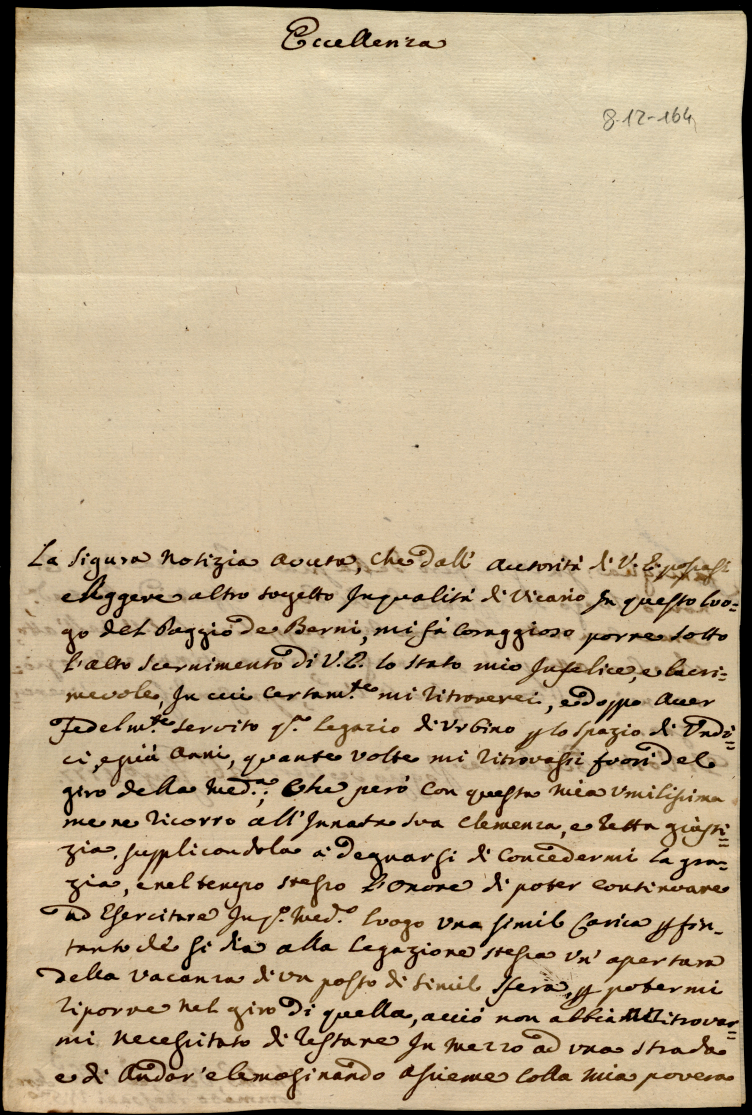 Eccellenza
8-12-164
La sigura notizia avuta, che dall' autorità di V. E.
elleggere altro sogetto In qualità di Vicario In questo luo-
go del Poggio de Berni, mi fà coraggioso porre sotto
l'alto scernimento di V. E. lo stato mio Infelice, e lacri-
mevole, In cui certam.te mi ritroverei, e doppo aver
Fedelm.te servito q.ta Legazio di Urbino p lo spazio di Undi-
ci, e più anni, quante volte mi ritrovassi fuori del
giro della Med.ma; Che però con questa mia Umilissima
me ne ricorro all'Innata sua Clemenza, e retta giusti=
zia, supplicandola a degnarsi di concedermi la gra=
zia, e nel tempo stesso l'onore di poter continuare
ad Esercitare In q.o Med.o luogo una simil Carica p fin-
tanto chè si dia alla Legazione stessa un' apertura
della vacanza di un posto di simil sfera, p potermi
riporre nel giro di quella, acciò non abbia ritrovar=
mi necessitato di restare In mezzo ad una strada
e di andar' elemosinando assieme colla mia povera